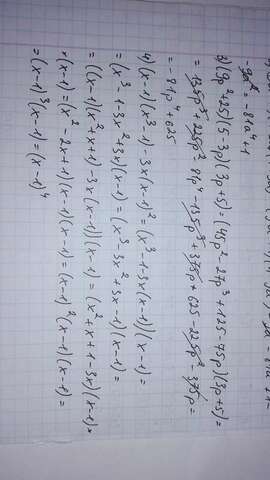 -9a² - 81a⁴+1
3) (9p²+25)(5-3p)(3p+5) = (45p² - 27p³ + 125 - 75p)(3p+5) =
= 135p³ + 225p² - 81p⁴ - 135p³ + 375p + 625 - 225p² - 375p =
= -81p⁴ + 625
4) (x-1)(x³-1) - 3x(x-1)² = (x³-1-3x(x-1))(x-1) =
= (x³-1-3x²+3x)(x-1) = (x³-3x²+3x-1)(x-1) =
= ((x-1)(x²+x+1) - 3x(x-1))(x-1) = (x²+x+1-3x)(x-1)×
×(x-1) = (x²-2x+1)(x-1)(x-1) = (x-1)²(x-1)(x-1) =
= (x-1)³(x-1) = (x-1)⁴